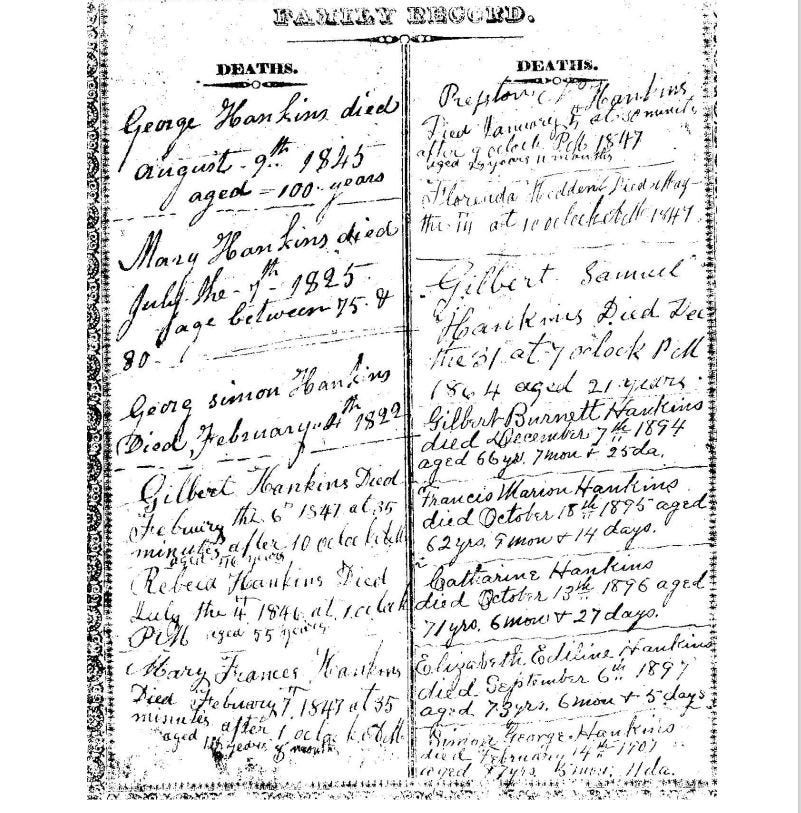 FAMILY RECORD.
DEATHS.
George Hankins died
August 9th 1845
aged = 100 years
Mary Hankins died
July the 7th 1825
age between 75 &
80
Georg Simon Hankins
Died February 4th 1822
Gilbert Hankins Died
Februry the 6th 1847 at 35
minutes after 10 oclock
aged years
Rebeca Hankins Died
July the 4th 1846 at 1 oclock
PM aged 55 years
Mary Frances Hankins
Died February 7 1847 at 35
minutes after 1 oclock
aged years 8 months
DEATHS.
Preston Hankins
Died January 5 at 30 munits
after 9 oclock PM 1847
aged years 11 months
Florenda Hedden Died May
the 14 at 10 oclock 1847
Gilbert Samuel
Hankins Died Dec
the 31 at 7 oclock PM
1864 aged 21 years
Gilbert Burnett Hankins
died December 7th 1894
aged 66 yrs. 7 mon + 25 da.
Francis Marion Hankins
died October 18th 1895 aged
62 yrs. 9 mon + 14 days.
Catharine Hankins
died October 13th 1896 aged
71 yrs. 6 mon + 27 days.
Elizabeth Ediline Hankins
died September 6th 1897
aged 73 yrs. 6 mon + 5 days
Simon George Hankins
died February 14th 1901
aged yrs. mon. 11 da.